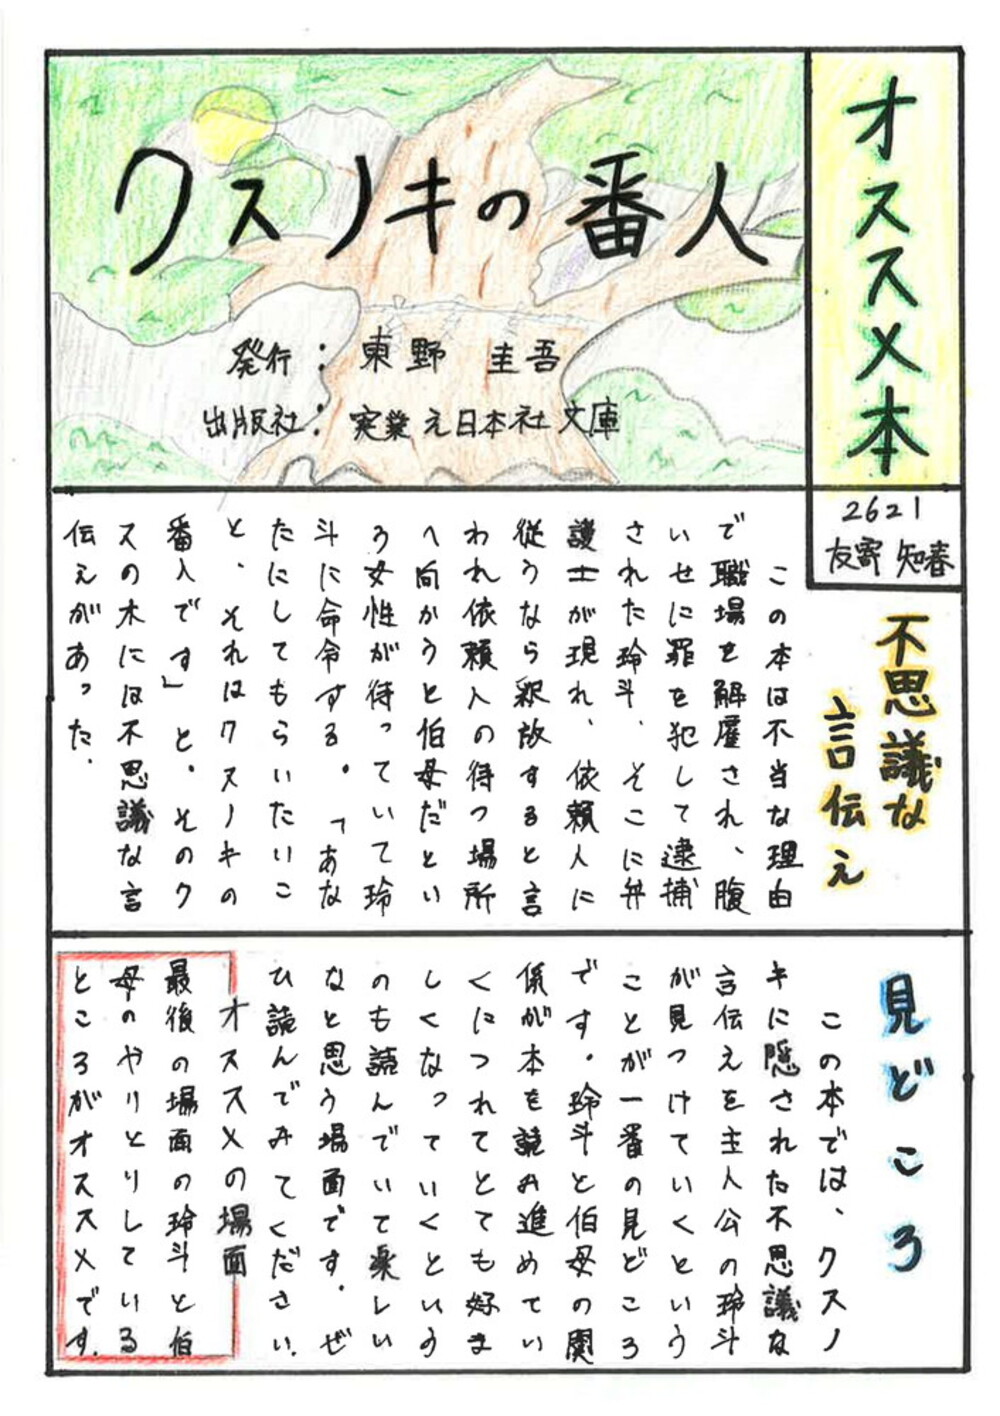 オススメ本
2621
友寄 知春
クスノキの番人
発行：東野 圭吾
出版社：実業え日本社文庫
不思議な
言伝え
この本は不当な理由
で職場を解雇され、腹
いせに罪を犯して逮捕
された玲斗、そこに弁
護士が現れ、依頼人に
従うなら釈放すると言
われ依頼人の待つ場所
へ向かうと伯母だとい
う女性が待っていて玲
斗に命令する。「あな
たにしてもらいたいこ
と、それはクスノキの
番人です」と。そのク
スの木には不思議な言
伝えがあった.
見どころ
この本では、クスノ
キに隠された不思議な
言伝えを主人公の玲斗
が見つけていくという
ことが一番の見どころ
です.玲斗と伯母の関
係が本を読み進めてい
くにつれてとても好ま
しくなっていくという
のも読んでいて楽しい
なと思う場面です.ぜ
ひ読んでみてください.
オススメの場面
最後の場面の玲斗と伯
母のやりとりしている
ところがオススメです.